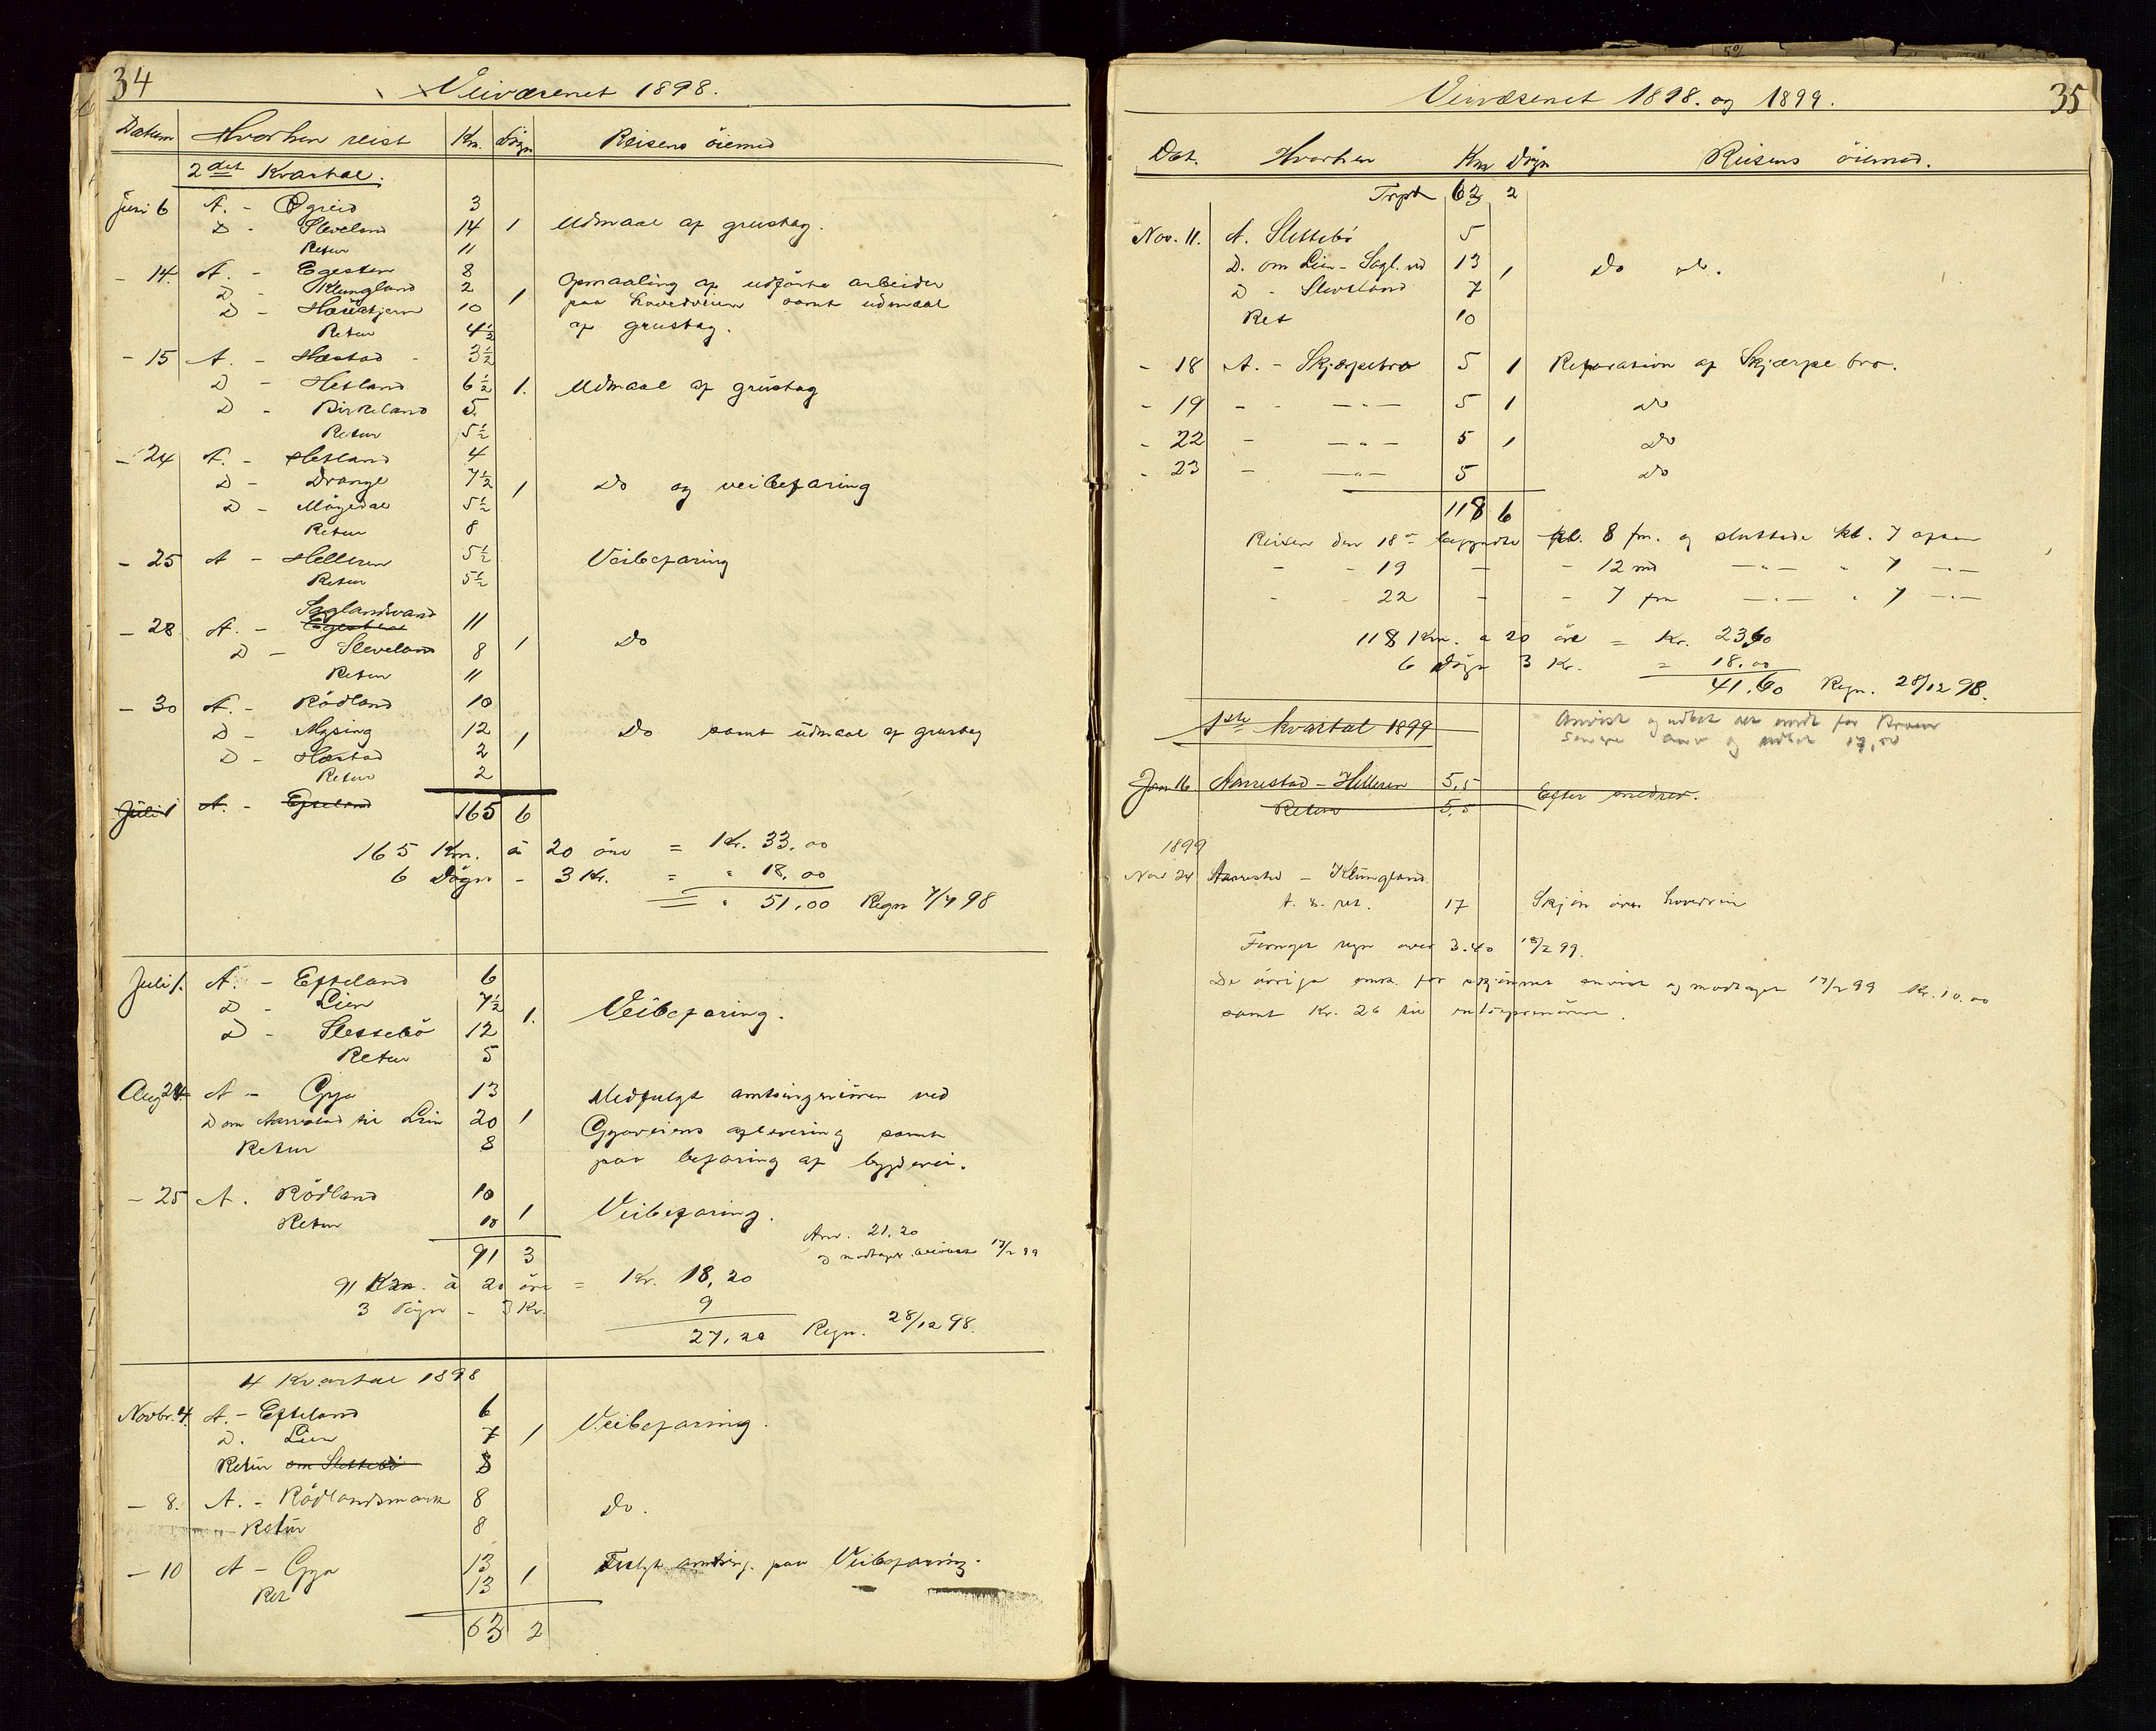 34
Veivæsenet 1898.
Datum Hvorhen reist Km. Døgn Reisens öiemed
2det Kvartal.
Juni 6 A. - Øgreid 3
D - Sleveland 14 1 Udmaal af grustag.
Retur 11
- 14. A. - Egesten 8
D - Klungland 2 1 Opmaaling af udførte arbeider
D - Hæstjern 10 paa hovedveien samt udmaal
Retur 4½ af grustag.
- 15 A. - Hæstad - 3½
D - Hetland 6½ 1. Udmaal af grustag
D - Birkeland 5
Retur 5½
- 24 A. - Hetland 4
D - Drange 7½ 1 Do og veibefaring
D - Mögedal 5½
Retur 8
- 25 A - Helleren 5½ Veibefaring
Retur 5½
Saglandsvand
- 28 A. - 11
D - Sleveland 8 1 Do
Retur 11
- 30 A. - Rödland 10
D - Mysing 12 1 Do samt udmaal af grustag
D - Hæstad 2
Retur 2
Juli 1 A. - Efteland 165 6
165 Km. à 20 öre = Kr. 33.00
6 Døgn - 3 Kr. = " 18.00
= " 51.00 Regn 7/7 98
Juli 1. A. - Efteland 6
D - Lien 7½ 1. Veibefaring.
D - Slettebö 12
Retur 5
Aug 24. A - Gya 13 Medfulgt amtsingeniören ved
D om Aarrestad til Lien 20 1 Gyaveiens aflevering samt
Retur 8 paa befaring af bygdevei.
- 25 A. Rödland 10
Retur 10 1 Veibefaring.
Anv. 21.20
91 3 og modtaget 17/2 99
91 Km. à 20 öre = Kr. 18,20
3 Døgn - 3 Kr. 9
27,20 Regn. 28/12 98.
4 Kvartal 1898
Novbr. 4. A. - Efteland 6
D. Lien 7 1 Veibefaring.
Retur om Slettebö 8
- 8. A. - Rödlandsmark 8 Do.
Retur 8
- 10 A - Gya 13 1 Fulgt amtsing. paa Veibefaring.
Ret 13
63 2
Veivæsenet 1898. og 1899.
35
Dat. Hvorhen Km Døgn Reisens öiemed.
Trpt 63 2
Nov. 11. A. Slettebö 5
D. om Lien - Sagl.vd 13 1 Do do.
D - Sleveland 7
Ret 10
- 18 A. - Skjærpebro 5 1 Reparation af Skjærpe bro.
- 19 - - — " — 5 1 Do
- 22 - — " — 5 1 Do
- 23 - — " — 5 Do
118 6
Reisen den 18de begyndte kl. 8 fm. og sluttede kl. 7 aften
- - 19 - - 12 md — " — " 7 — " —
- 22 - - 7 fm — " — " 7 — " —
118 Km. a 20 öre = Kr. 23,60
6 Døgn 3 Kr. = 18.00
41.60 Regn. 28/12 98.
1ste kvartal 1899
Anvist og udbet for
Senere anv og udbet 17,00
Jan 16 Aarrestad - Helleren 5,5
Retur 5,5 Efter
1899
Nov 24 Aarrestad - Klungland
t. & ret. 17 Skjön over hovedvei
regn over 3.40 18/2 99.
De övrige omk. for skjönnet anvist og modtaget 17/2 99 Kr. 10.00
samt Kr. 26 til entreprenören.